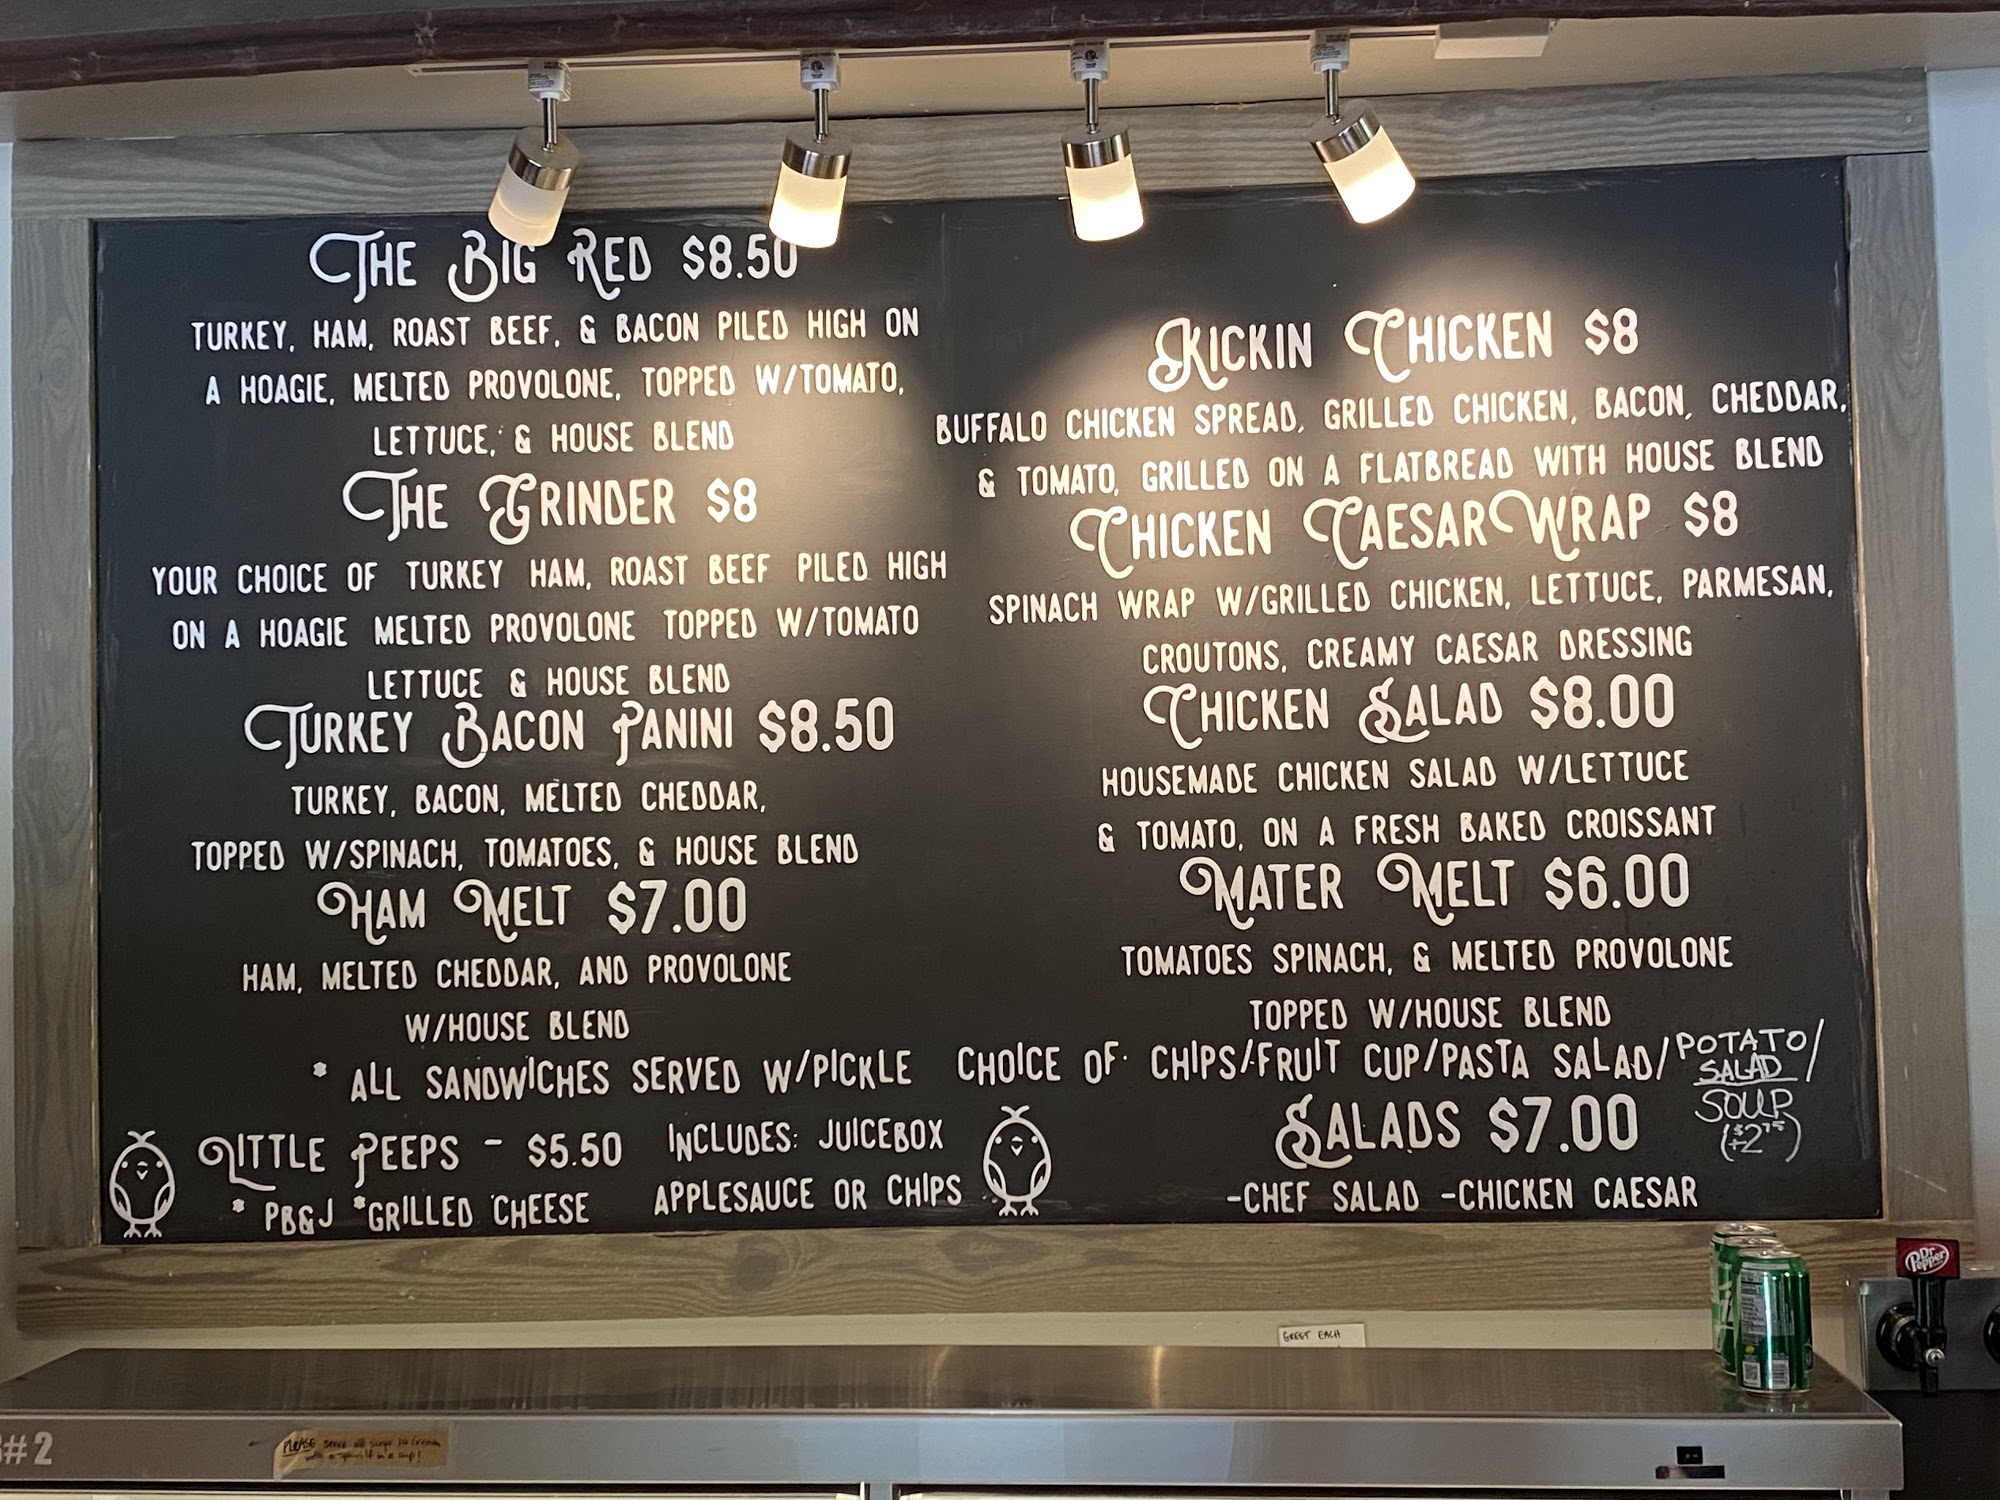 The Big Red $8.50
TURKEY, HAM, ROAST BEEF, & BACON PILED HIGH ON
A HOAGIE, MELTED PROVOLONE, TOPPED W/TOMATO,
LETTUCE, & HOUSE BLEND
The Grinder $8
YOUR CHOICE OF TURKEY HAM, ROAST BEEF PILED HIGH
ON A HOAGIE MELTED PROVOLONE TOPPED W/TOMATO
LETTUCE & HOUSE BLEND
Turkey Bacon Panini $8.50
TURKEY, BACON, MELTED CHEDDAR,
TOPPED W/SPINACH, TOMATOES, & HOUSE BLEND
Ham Melt $7.00
HAM, MELTED CHEDDAR, AND PROVOLONE
W/HOUSE BLEND
Kickin Chicken $8
BUFFALO CHICKEN SPREAD, GRILLED CHICKEN, BACON, CHEDDAR,
& TOMATO, GRILLED ON A FLATBREAD WITH HOUSE BLEND
Chicken Caesar Wrap $8
SPINACH WRAP W/GRILLED CHICKEN, LETTUCE, PARMESAN,
CROUTONS, CREAMY CAESAR DRESSING
Chicken Salad $8.00
HOUSEMADE CHICKEN SALAD W/LETTUCE
& TOMATO, ON A FRESH BAKED CROISSANT
Mater Melt $6.00
TOMATOES SPINACH, & MELTED PROVOLONE
TOPPED W/HOUSE BLEND
* ALL SANDWICHES SERVED W/PICKLE CHOICE OF CHIPS/FRUIT CUP/PASTA SALAD/
POTATO/
SALAD /
SOUP
(+$2.75)
Little Peeps - $5.50
* PB&J *GRILLED CHEESE
INCLUDES: JUICEBOX
APPLESAUCE OR CHIPS
Salads $7.00
-CHEF SALAD -CHICKEN CAESAR
Dr Pepper
GREET EACH
#2
PLEASE serve all